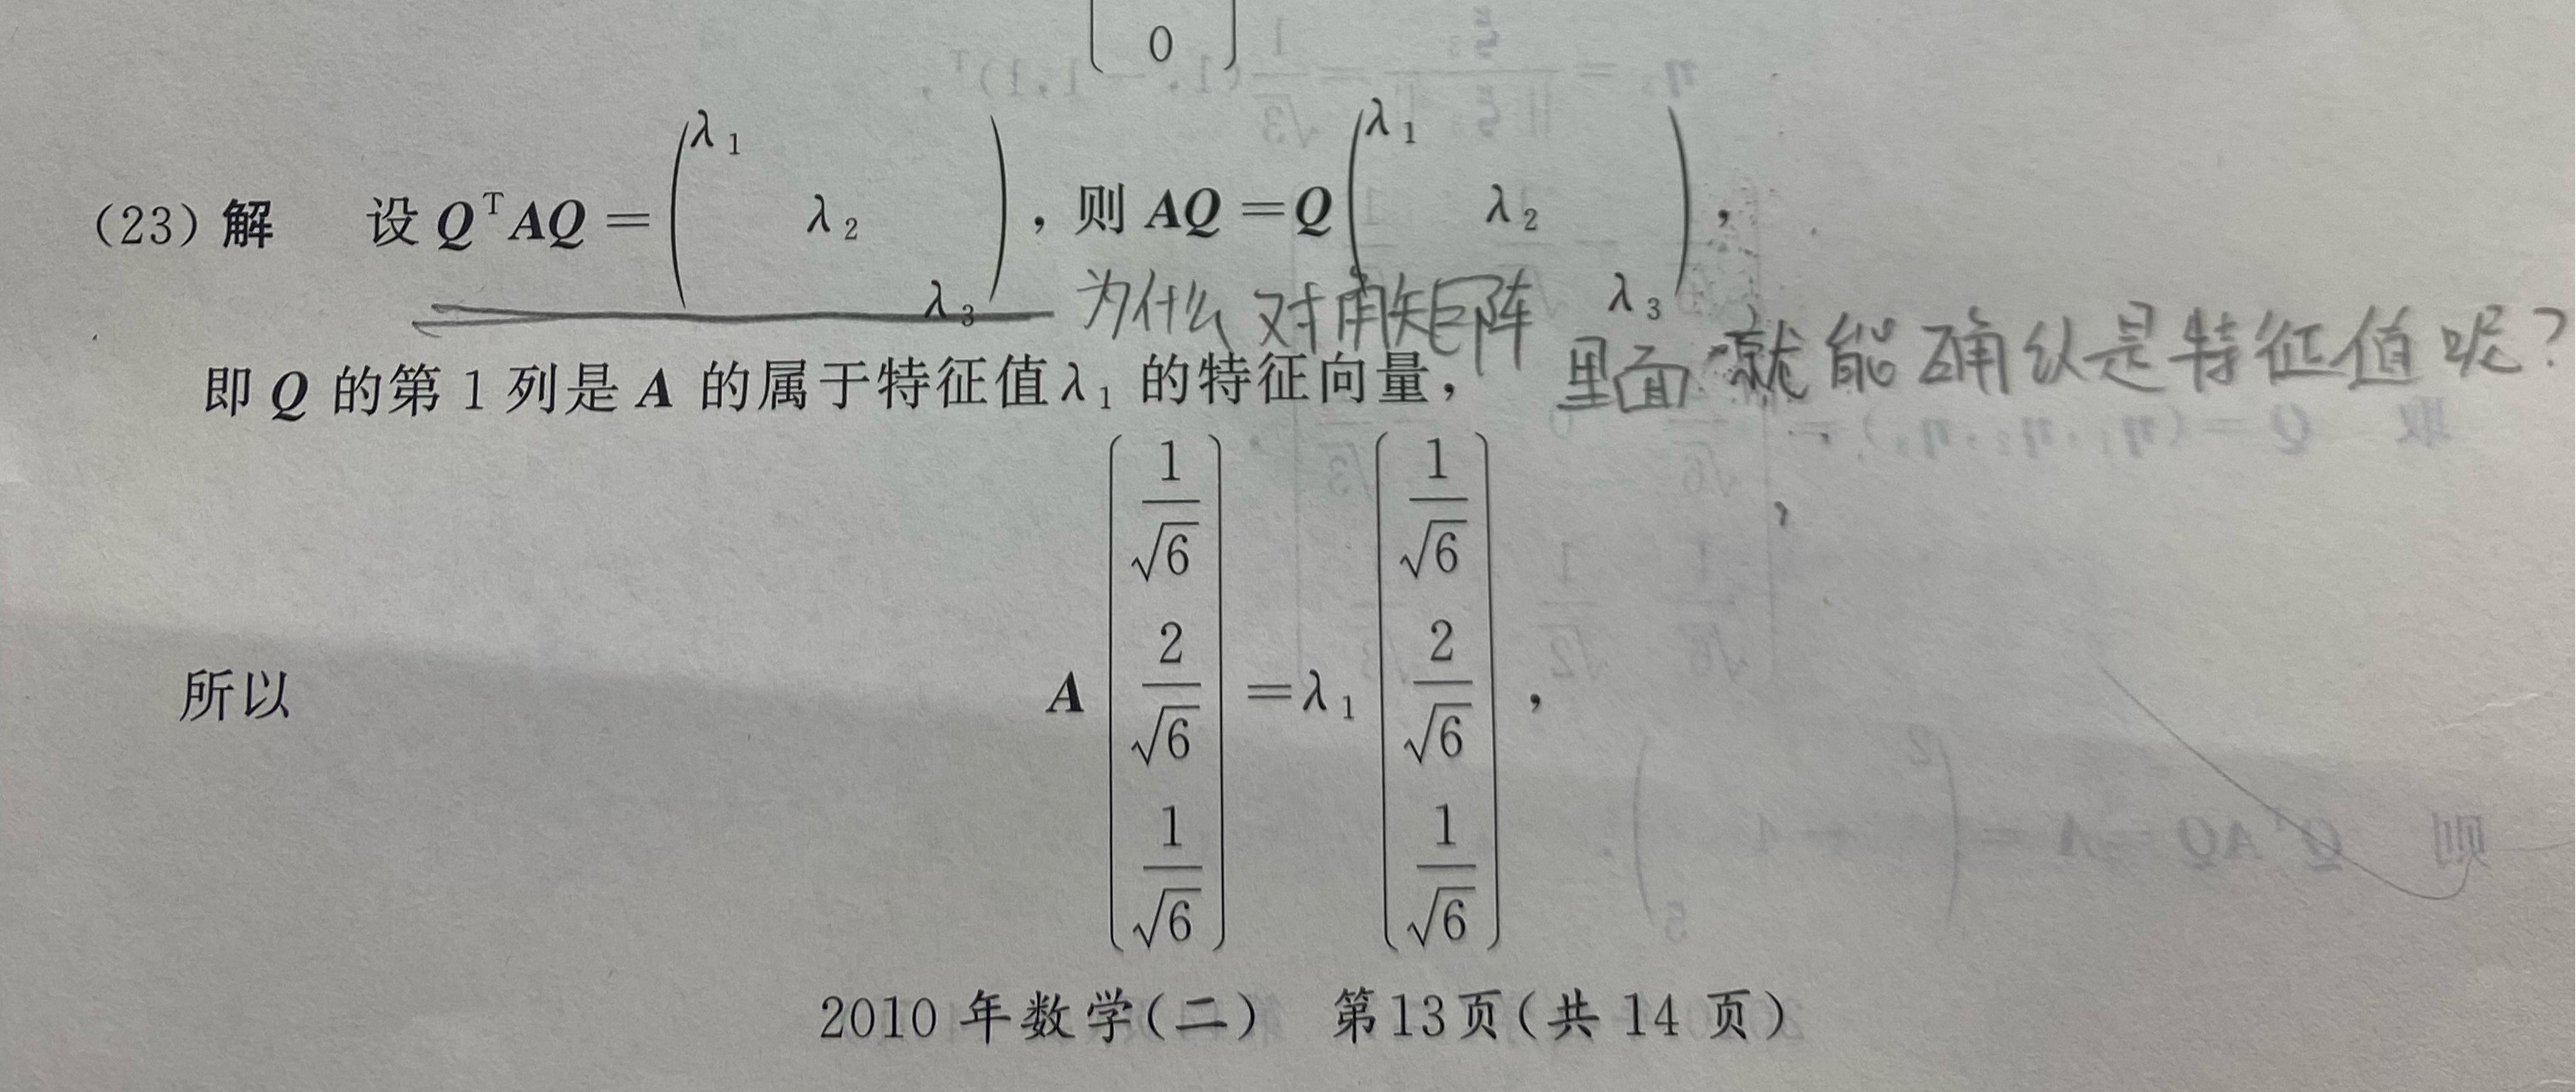 0
(23) 解 设 QᵀAQ = (λ₁ λ₂ λ₃), 则 AQ = Q(λ₁ λ₂ λ₃),
为什么对角矩阵里面就能确认是特征值呢?
即 Q 的第 1 列是 A 的属于特征值λ₁ 的特征向量,
所以 A (1/√6 2/√6 1/√6) = λ₁ (1/√6 2/√6 1/√6),
2010 年数学(二) 第13页(共 14 页)